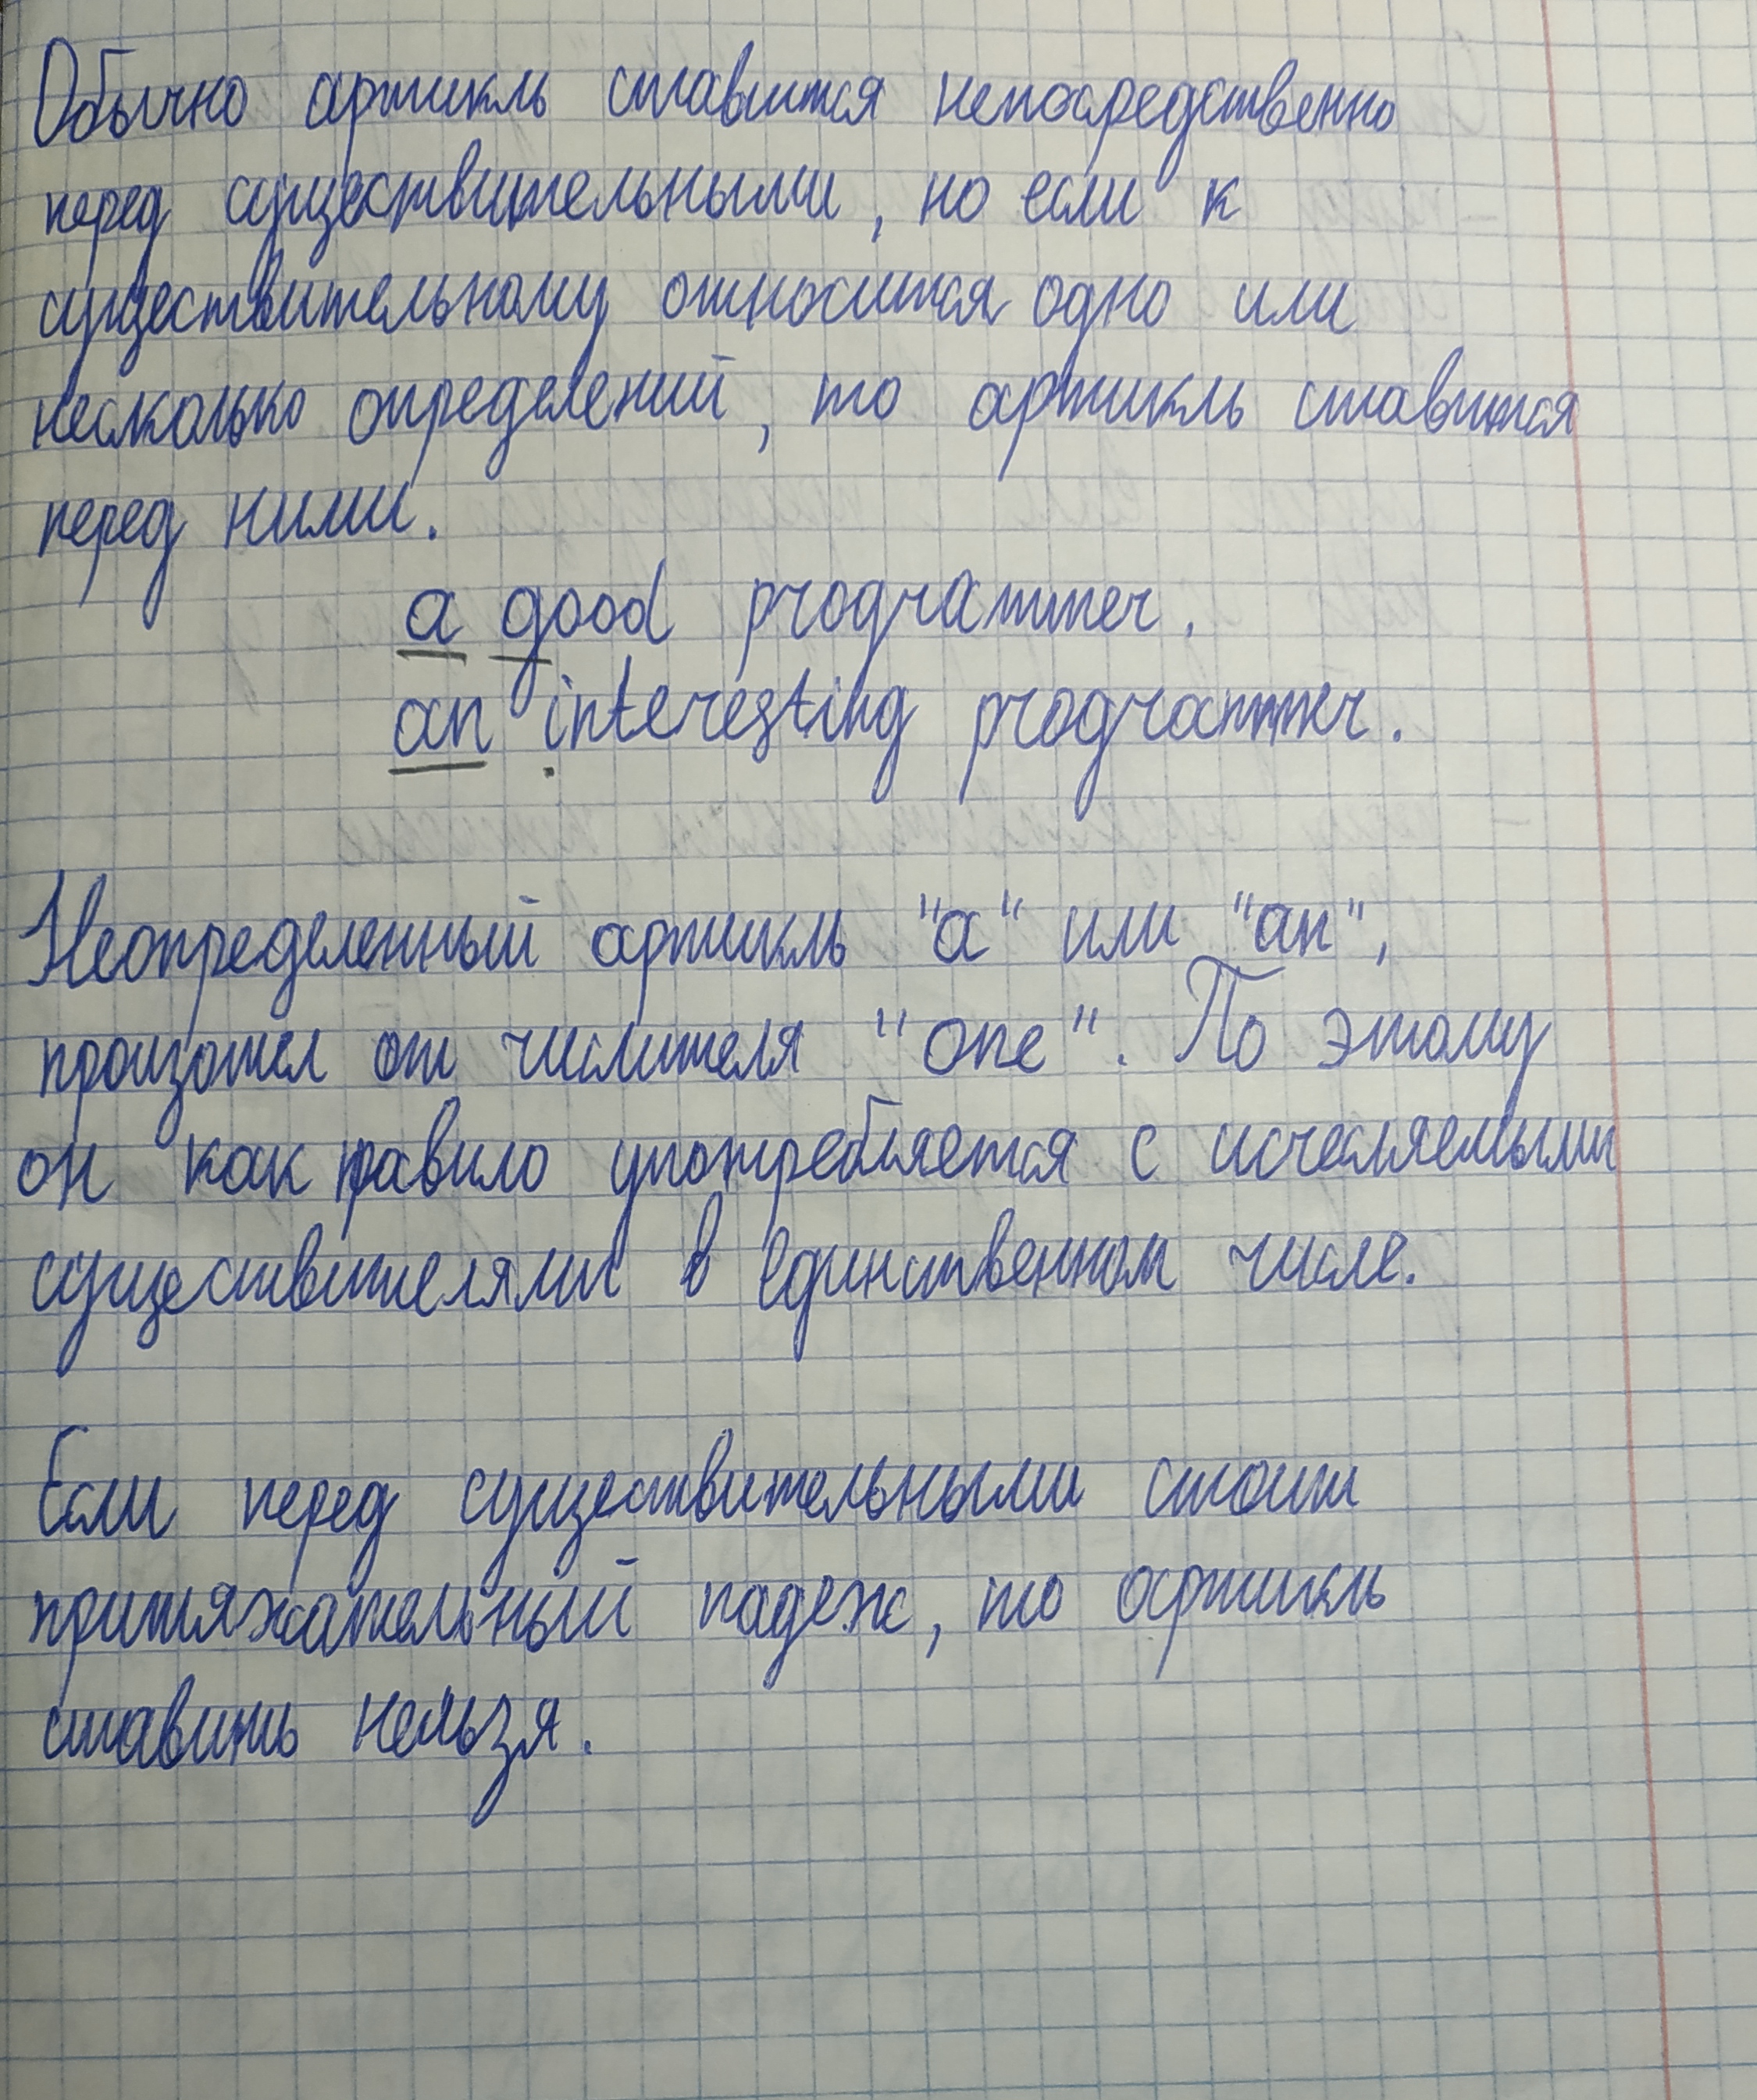 Обычно артикль ставится непосредственно
перед существительными, но если к
существительному относится одно или
несколько определений, то артикль ставится
перед ними.
a good programmer.
an interesting programmer.
Неопределенный артикль "a" или "an",
произошел от числителя "one". По этому
он как правило употребляется с исчесляемыми
существителями в единственном числе.
Если перед существительными стоит
притяжательный падеж, то артикль
ставить нельзя.